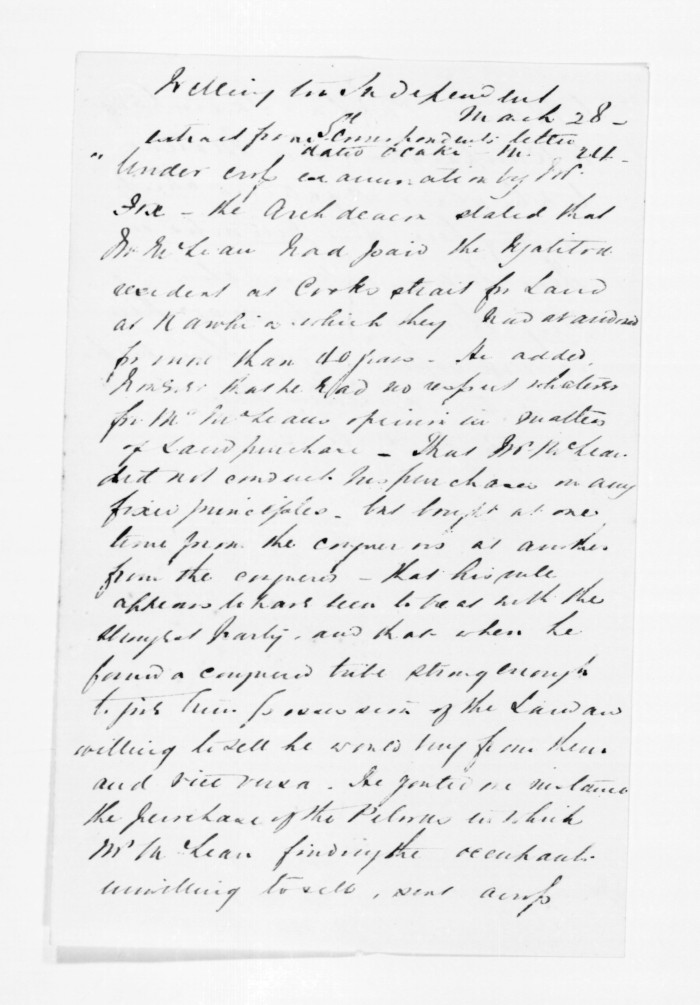 Wellington Independent
March 28 -
extract from Correspondents letter
dated Otaki - M. 24 -
"Under cross examination by Mr.
Fox - the Archdeacon stated that
Mr McLean had paid the Ngatitoa
resident at Cooks strait for Land
at Kawhia which they had abandoned
for more than 40 years - He added.
however that he had no respect whatever
for Mr McLeans opinion in matters
of Land purchase - That Mr McLean
did not conduct his purchases on any
fixed principles - but bought at one
time from the conquerors at another
from the conquered - that his rule
appears to have been to treat with the
strongest Party. and that when he
found a conquered tribe strong enough
to give him possession of the Land and
willing to sell he would buy from them
and vice versa. He quoted one instance
the purchase of the Pelorus in which
Mr McLean finding the occupants
unwilling to sell, sent across